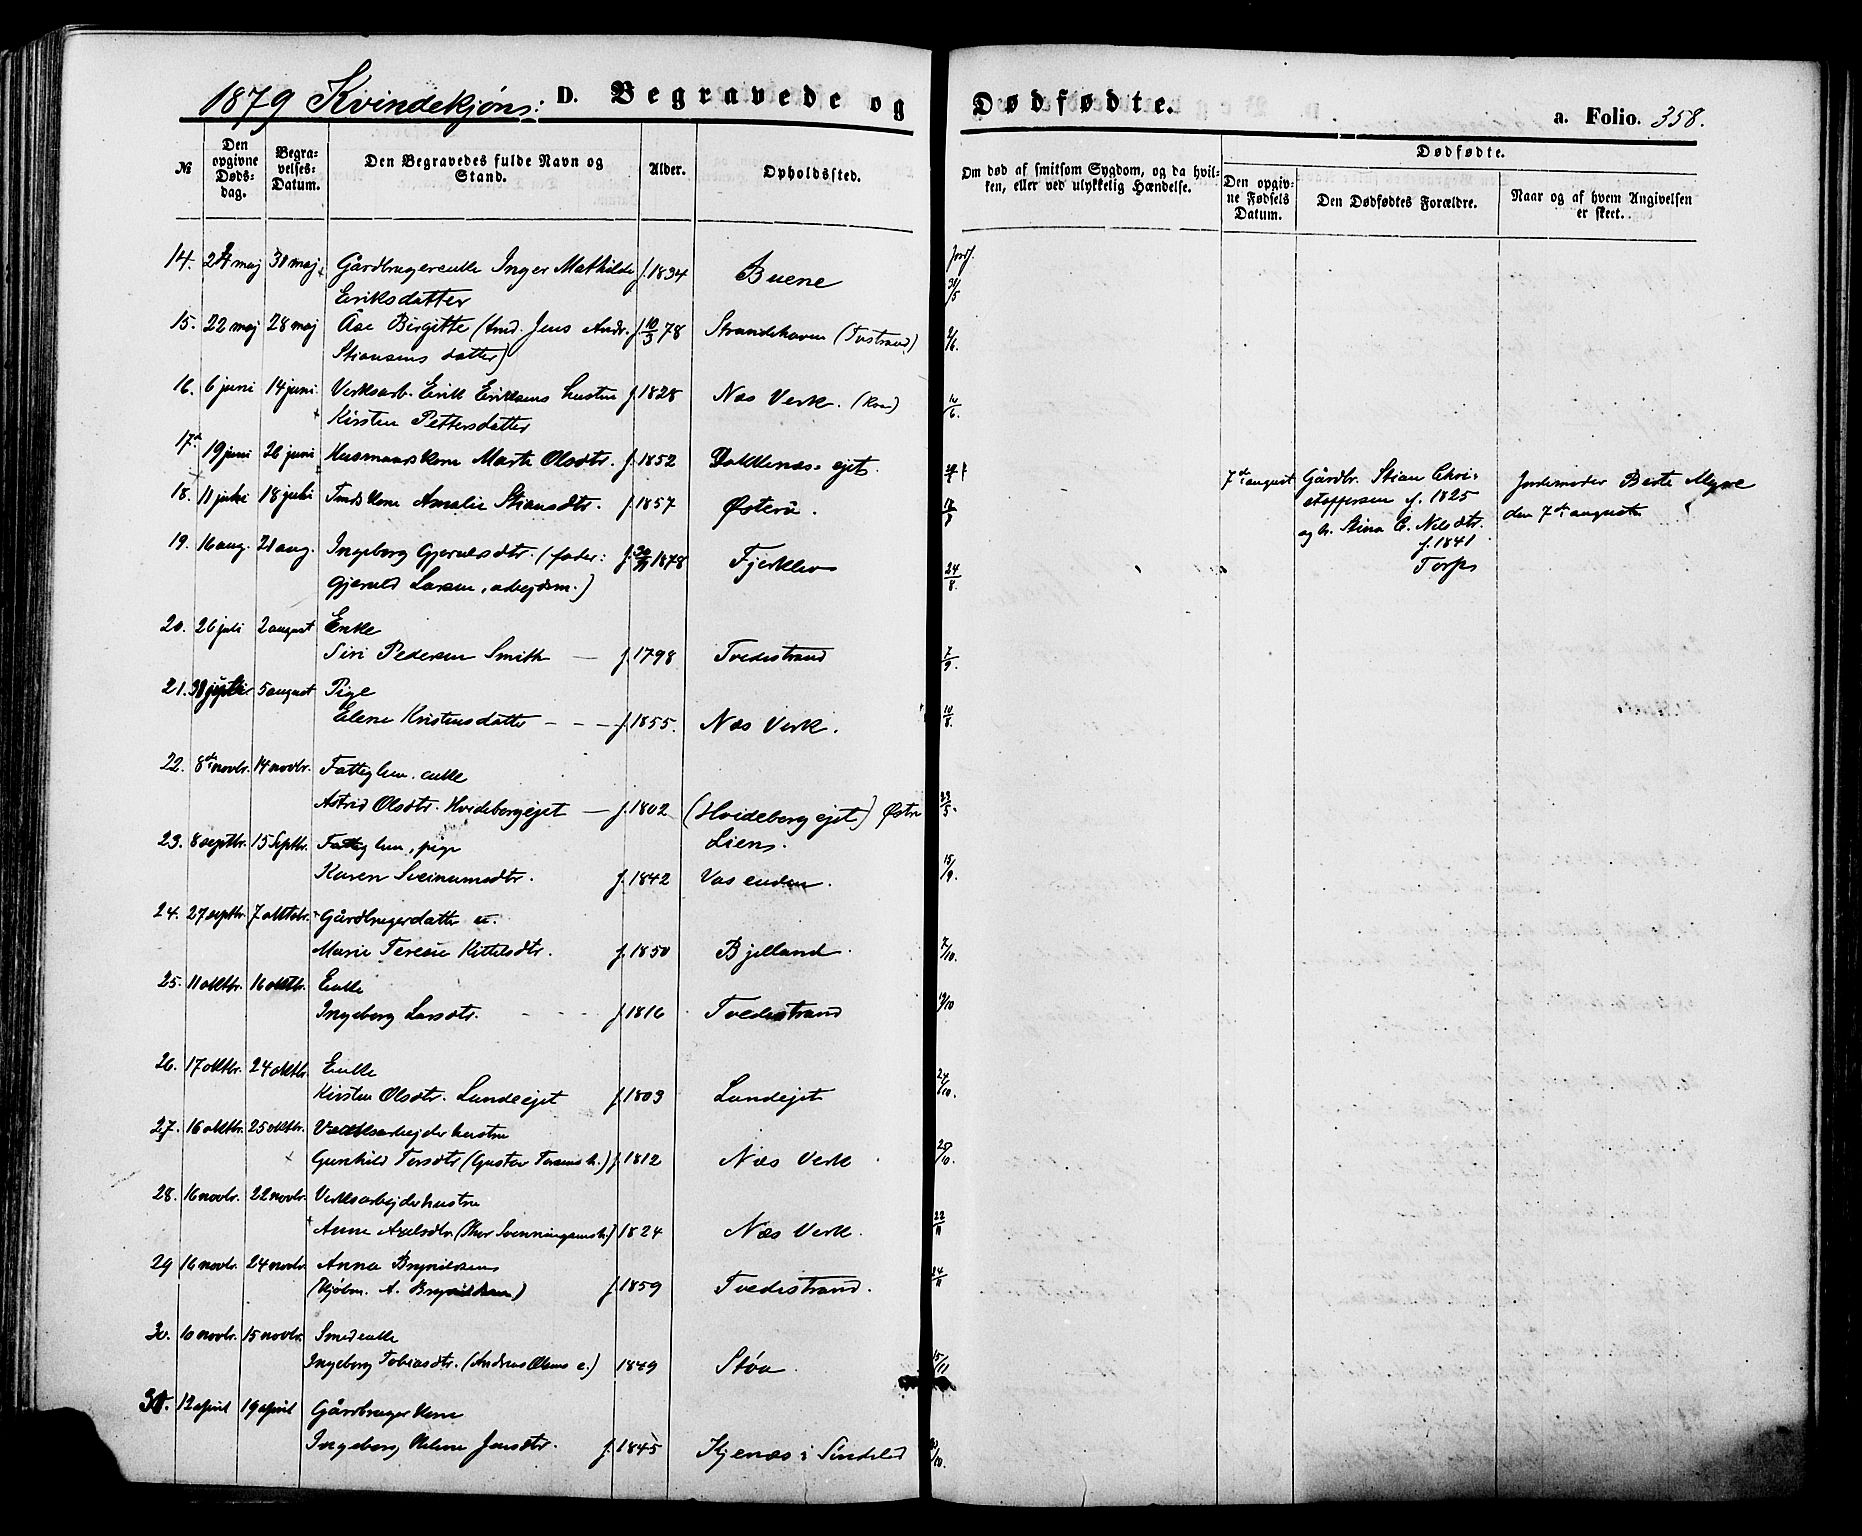 1879 Kvindekjøns: D. Begravede og Dødfødte. a. Folio. 358.
№
Den opgivne Døds-dag.
Begra-velses-Datum.
Den Begravedes fulde Navn og Stand.
Alder.
Opholdssted.
Om død af smitsom Sygdom, og da hvil-
ken, eller ved ulykkelig Hændelse.
Dødfødte.
Den opgiv-
ne Fødsels
Datum.
Den Dødfødtes Forældre.
Naar og af hvem Angivelsen
er skeet.
14. 24 maj 30 maj Gårdbrugerenke Inger Mathilde f. 1834 Buene 30/5
Eriksdatter
15. 22 maj 28 maj Åse Birgitte (tmd. Jens Andr. f. 10/3 78 Strandehaven (Tvstrand) 2/6.
Stiansens datter)
16. 6 juni 14 juni Verksarb. Erik Eriksens hustru f. 1828 Næs Verk.
Kirsten Pettersdatter
17. 19 juni 26 juni Husmandskone Marte Olsdtr. f. 1852
18. 11 juli 18 juli Tmds kone Amalie Stiansdtr. f. 1857 Østerå
19. 16 aug. 21 aug. Ingeborg Gjerulsdtr. (fader: f. 1878 Fjerkleiv 24/8.
Gjeruld Larsen, arbejdsm.)
7de august Gårdbr. Stian Chri-
stoffersen f. 1825
og h. Stina C. Nilsdtr.
f. 1841
Torp
Jordemoder Berte Myre
den 7de august
20. 26 juli 2 august Enke
Siri Pedersen Smith — f. 1798 Tvedestrand 7/9.
21. 5 august Pige
Elene Kristensdatter - - - f. 1855. Næs Verk. 10/8.
22. 8de novbr. 14 novbr. Fattiglem. enke
Astrid Olsdtr. Hvideborgejet — f. 1802 (Hvideborgejet) Østre
Liens.
23. 8 septbr. 15 Septbr. Fattiglem, pige
Karen Sveinumsdtr. f. 1842 Vasenden. 15/9.
24. 27 septbr. 7 oktbr. Gårdbrugerdatter
Marie Terese Kittelsdtr. f. 1850 Bjelland. 7/10.
25. 11 oktbr. 16 oktbr. Enke
Ingeborg Larsdtr. f. 1816 Tvedestrand
26. 17 oktbr. 24 oktbr. Enke
Kirsten Olsdtr. Lundeejet f. 1803 Lundejet 24/10.
27. 16 oktbr. 25 oktbr. Værksarbejderhustru
Gunhild Torsdtr (Gustav Torsens h.) f. 1812 Næs Verk 25/10.
28. 16 novbr. 22 novbr. Verksarbejderhustru
Anne Axelsdtr. (Thor Svenningsens h.) 1824 Næs Verk. 22/11
29 16 novbr. 24 novbr. Anna Brynildsens
(Kjøbm. A. Brynildsen) f. 1859 Tvedestrand. 24/11
30. 10 novbr. 15 novbr. Smedenke
Ingeborg Tobiasdtr. (Andreas Olsens e.) 1849 Støa. 15/11
31. 12 april 19 april Gårdbrugerkone
Ingeborg Helene Jensdtr. f. 1845 Kjenæs i Søndeled